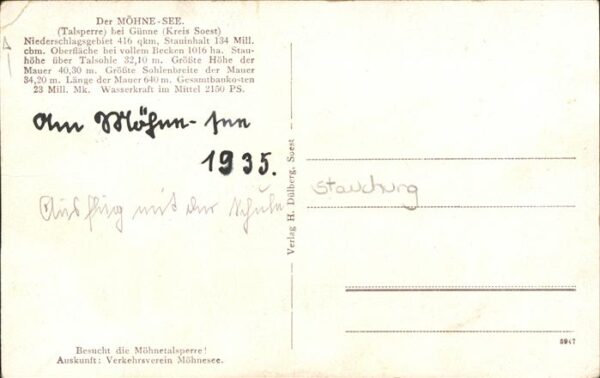 Der MÖHNE-SEE.
(Talsperre) bei Günne (Kreis Soest)
Niederschlagsgebiet 416 qkm, Stauinhalt 134 Mill.
cbm. Oberfläche bei vollem Becken 1016 ha. Stau-
höhe über Talsohle 32,10 m. Größte Höhe der
Mauer 40,30 m. Größte Sohlenbreite der Mauer
34,20 m. Länge der Mauer 640 m. Gesamtbankosten
23 Mill. Mk. Wasserkraft im Mittel 2150 PS.
Am Möhne-see
1935.
Ausflug mit der Schule
Verlag H. Dülberg, Soest
Besucht die Möhnetalsperre!
Auskunft: Verkehrsverein Möhnesee.
5947